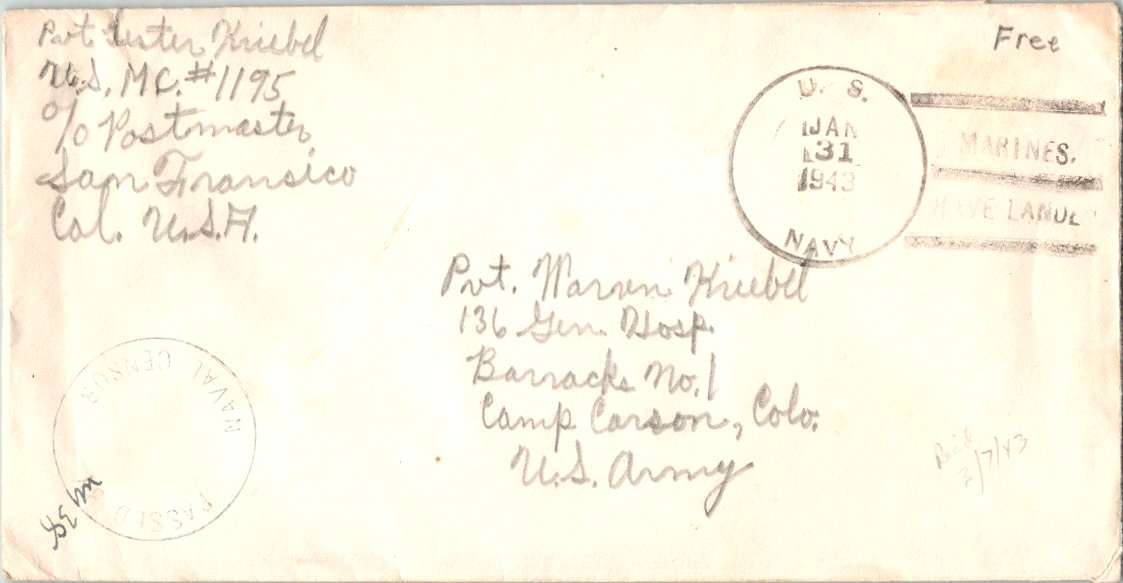 Pvt. Lester Kriebel
U.S.MC. #1195
c/o Postmaster,
San Fransico
Cal. U.S.A.
Free
U. S.
JAN
31
1943
NAVY
MARINES.
HAVE LANDE
Pvt. Warren Kriebel
136 Gen. Hosp.
Barracks No. 1
Camp Carson, Colo.
U.S. Army
PASSED
NAVAL CENSOR
Rec'd
2/7/43